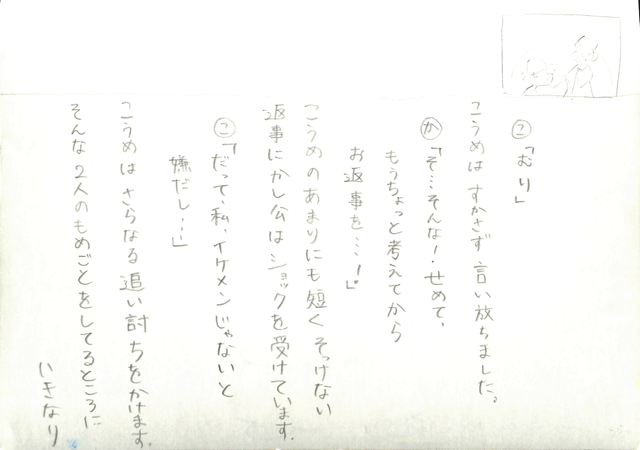 こ「むり」
こうめは すかさず 言い放ちました。
か「そ…そんな!せめて、
もうちょっと考えてから
お返事を…!」。
こうめのあまりにも短く そっけない
返事に かし公は ショックを受けています。
こ「だって、私、イケメンじゃないと
嫌だし…」
こうめは さらなる 追い討ちをかけます。
そんな 2人のもめごとをしてるところに
いきなり